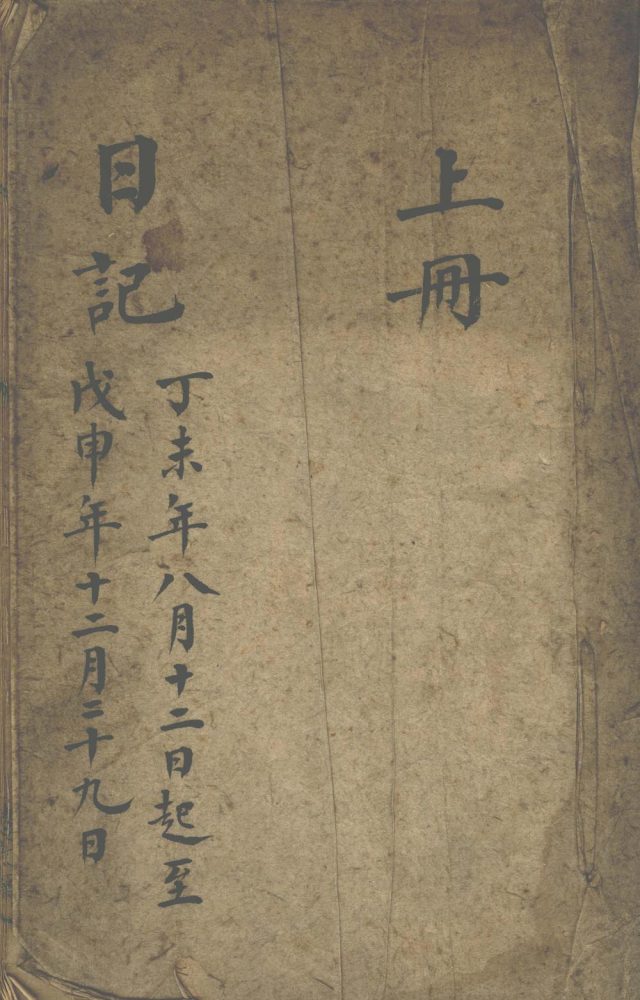 上冊
日記
丁未年八月十二日起至
戊申年十二月二十九日